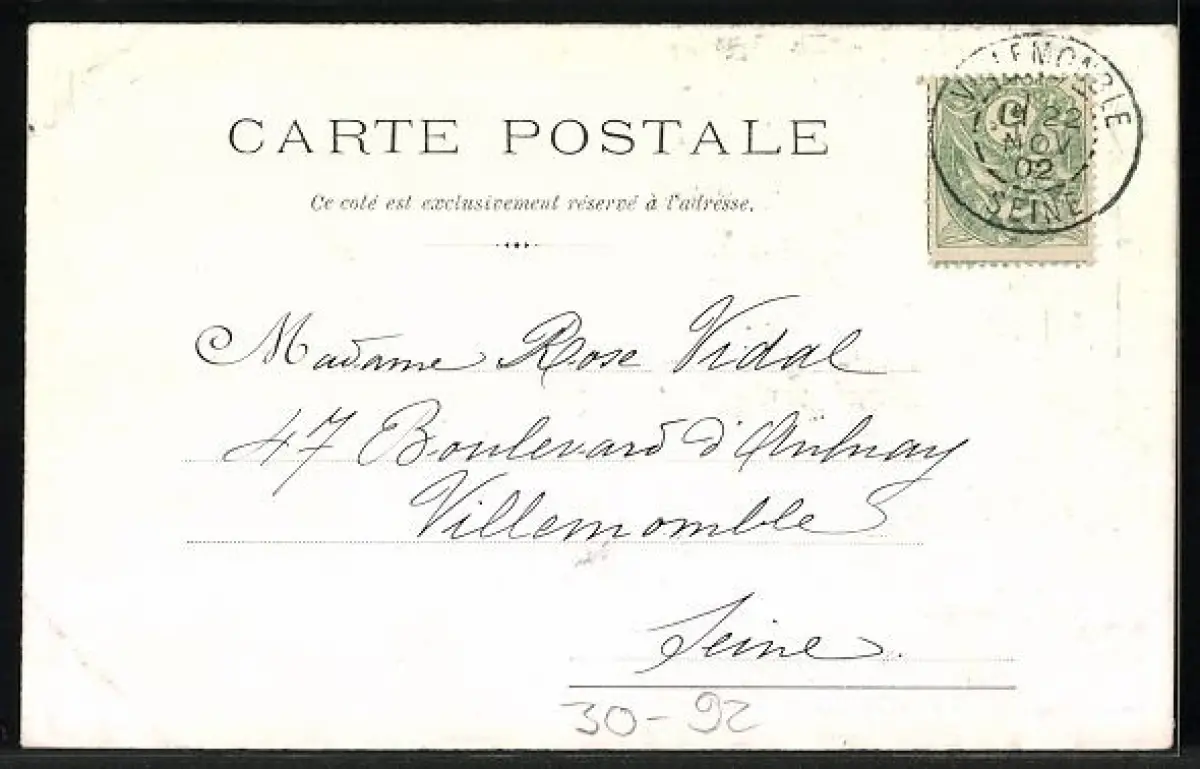 CARTE POSTALE
Ce coté est exclusivement réservé à l'adresse.
VILLEMOMBLE
22
NOV
02
SEINE
Madame Rose Vidal
47 Boulevard d'Aulnay
Villemomble
Seine.
30-92